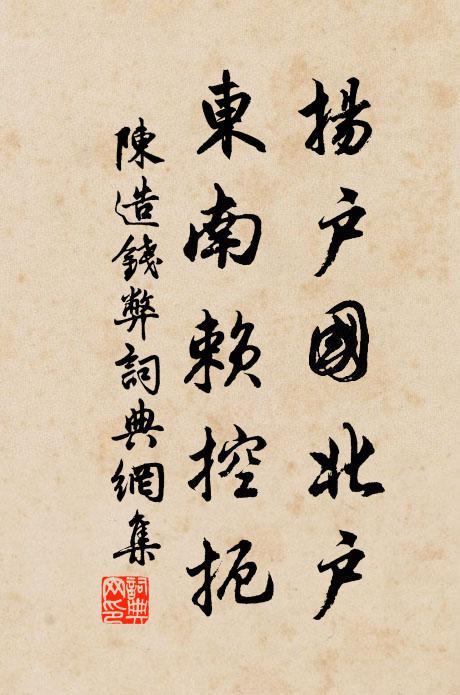 揚户國北户
東南賴控扼
陳造錢弊詞典網集
詞典網印